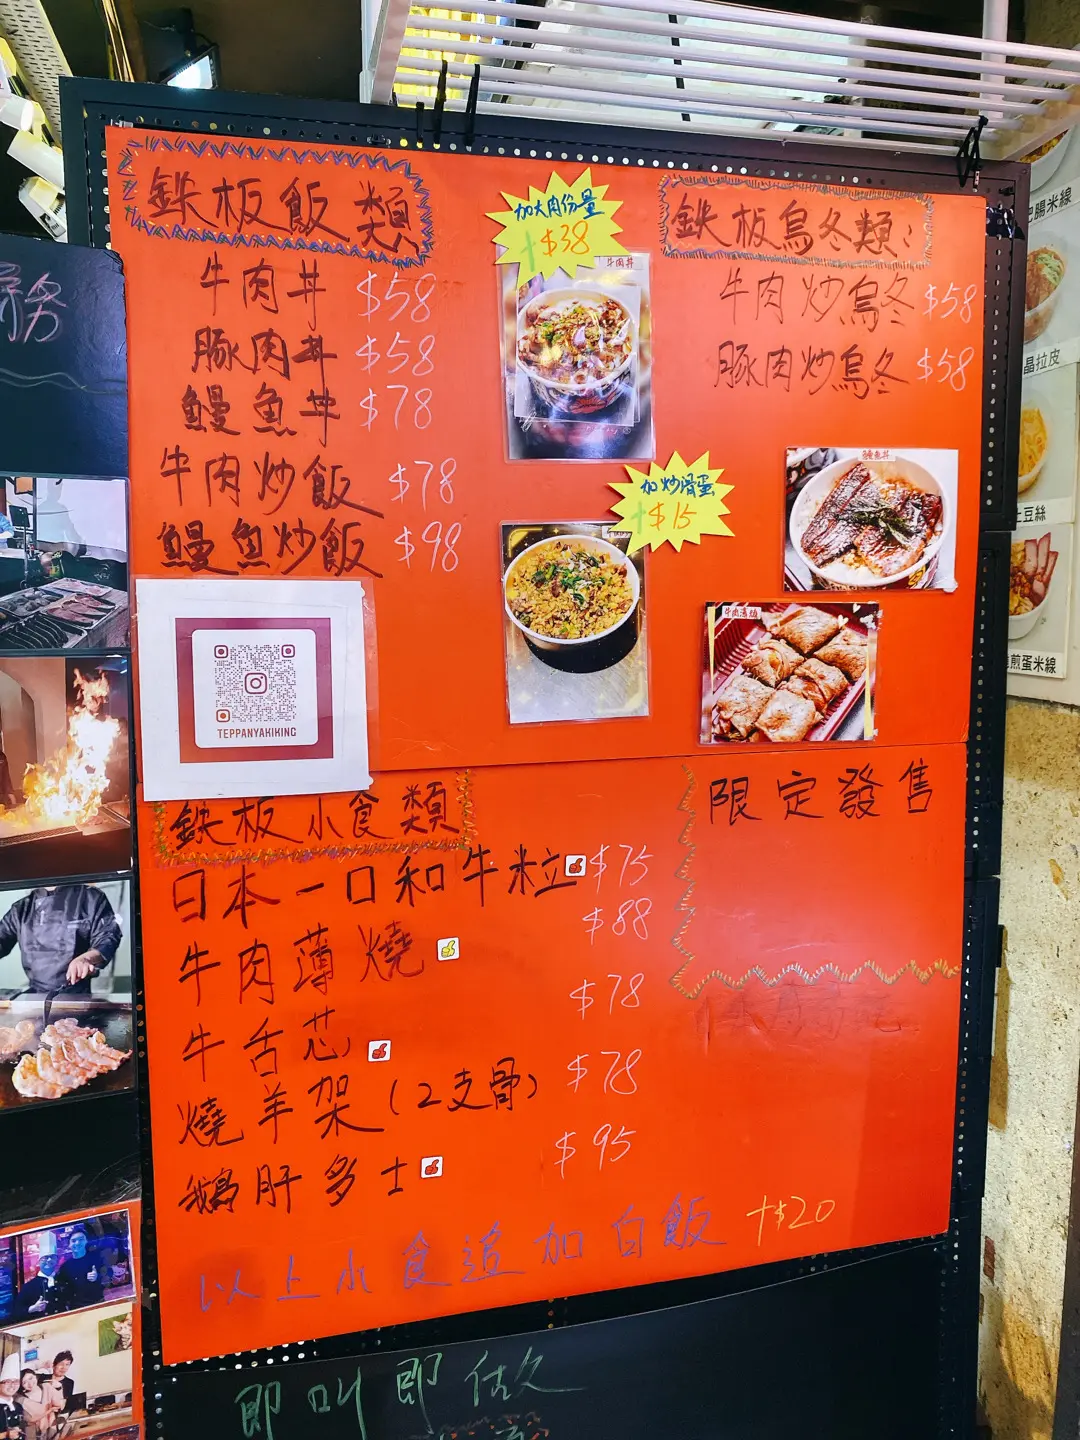 鉄板飯類
牛肉丼 $58
豚肉丼 $58
鰻魚丼 $78
牛肉炒飯 $78
鰻魚炒飯 $98
加大肉份量
+$38
牛肉丼
鉄板烏冬類:
牛肉炒烏冬 $58
豚肉炒烏冬 $58
加炒滑蛋
+$15
鰻魚丼
牛肉薄燒
TEPPANYAKIKING
鉄板小食類
日本一口和牛粒 $75
牛肉薄燒 $88
牛舌芯 $78
燒羊架(2支骨) $78
鵝肝多士 $95
以上小食追加白飯 +$20
限定發售
即叫即做
務
肥腸米線
晶拉皮
土豆絲
煎蛋米線